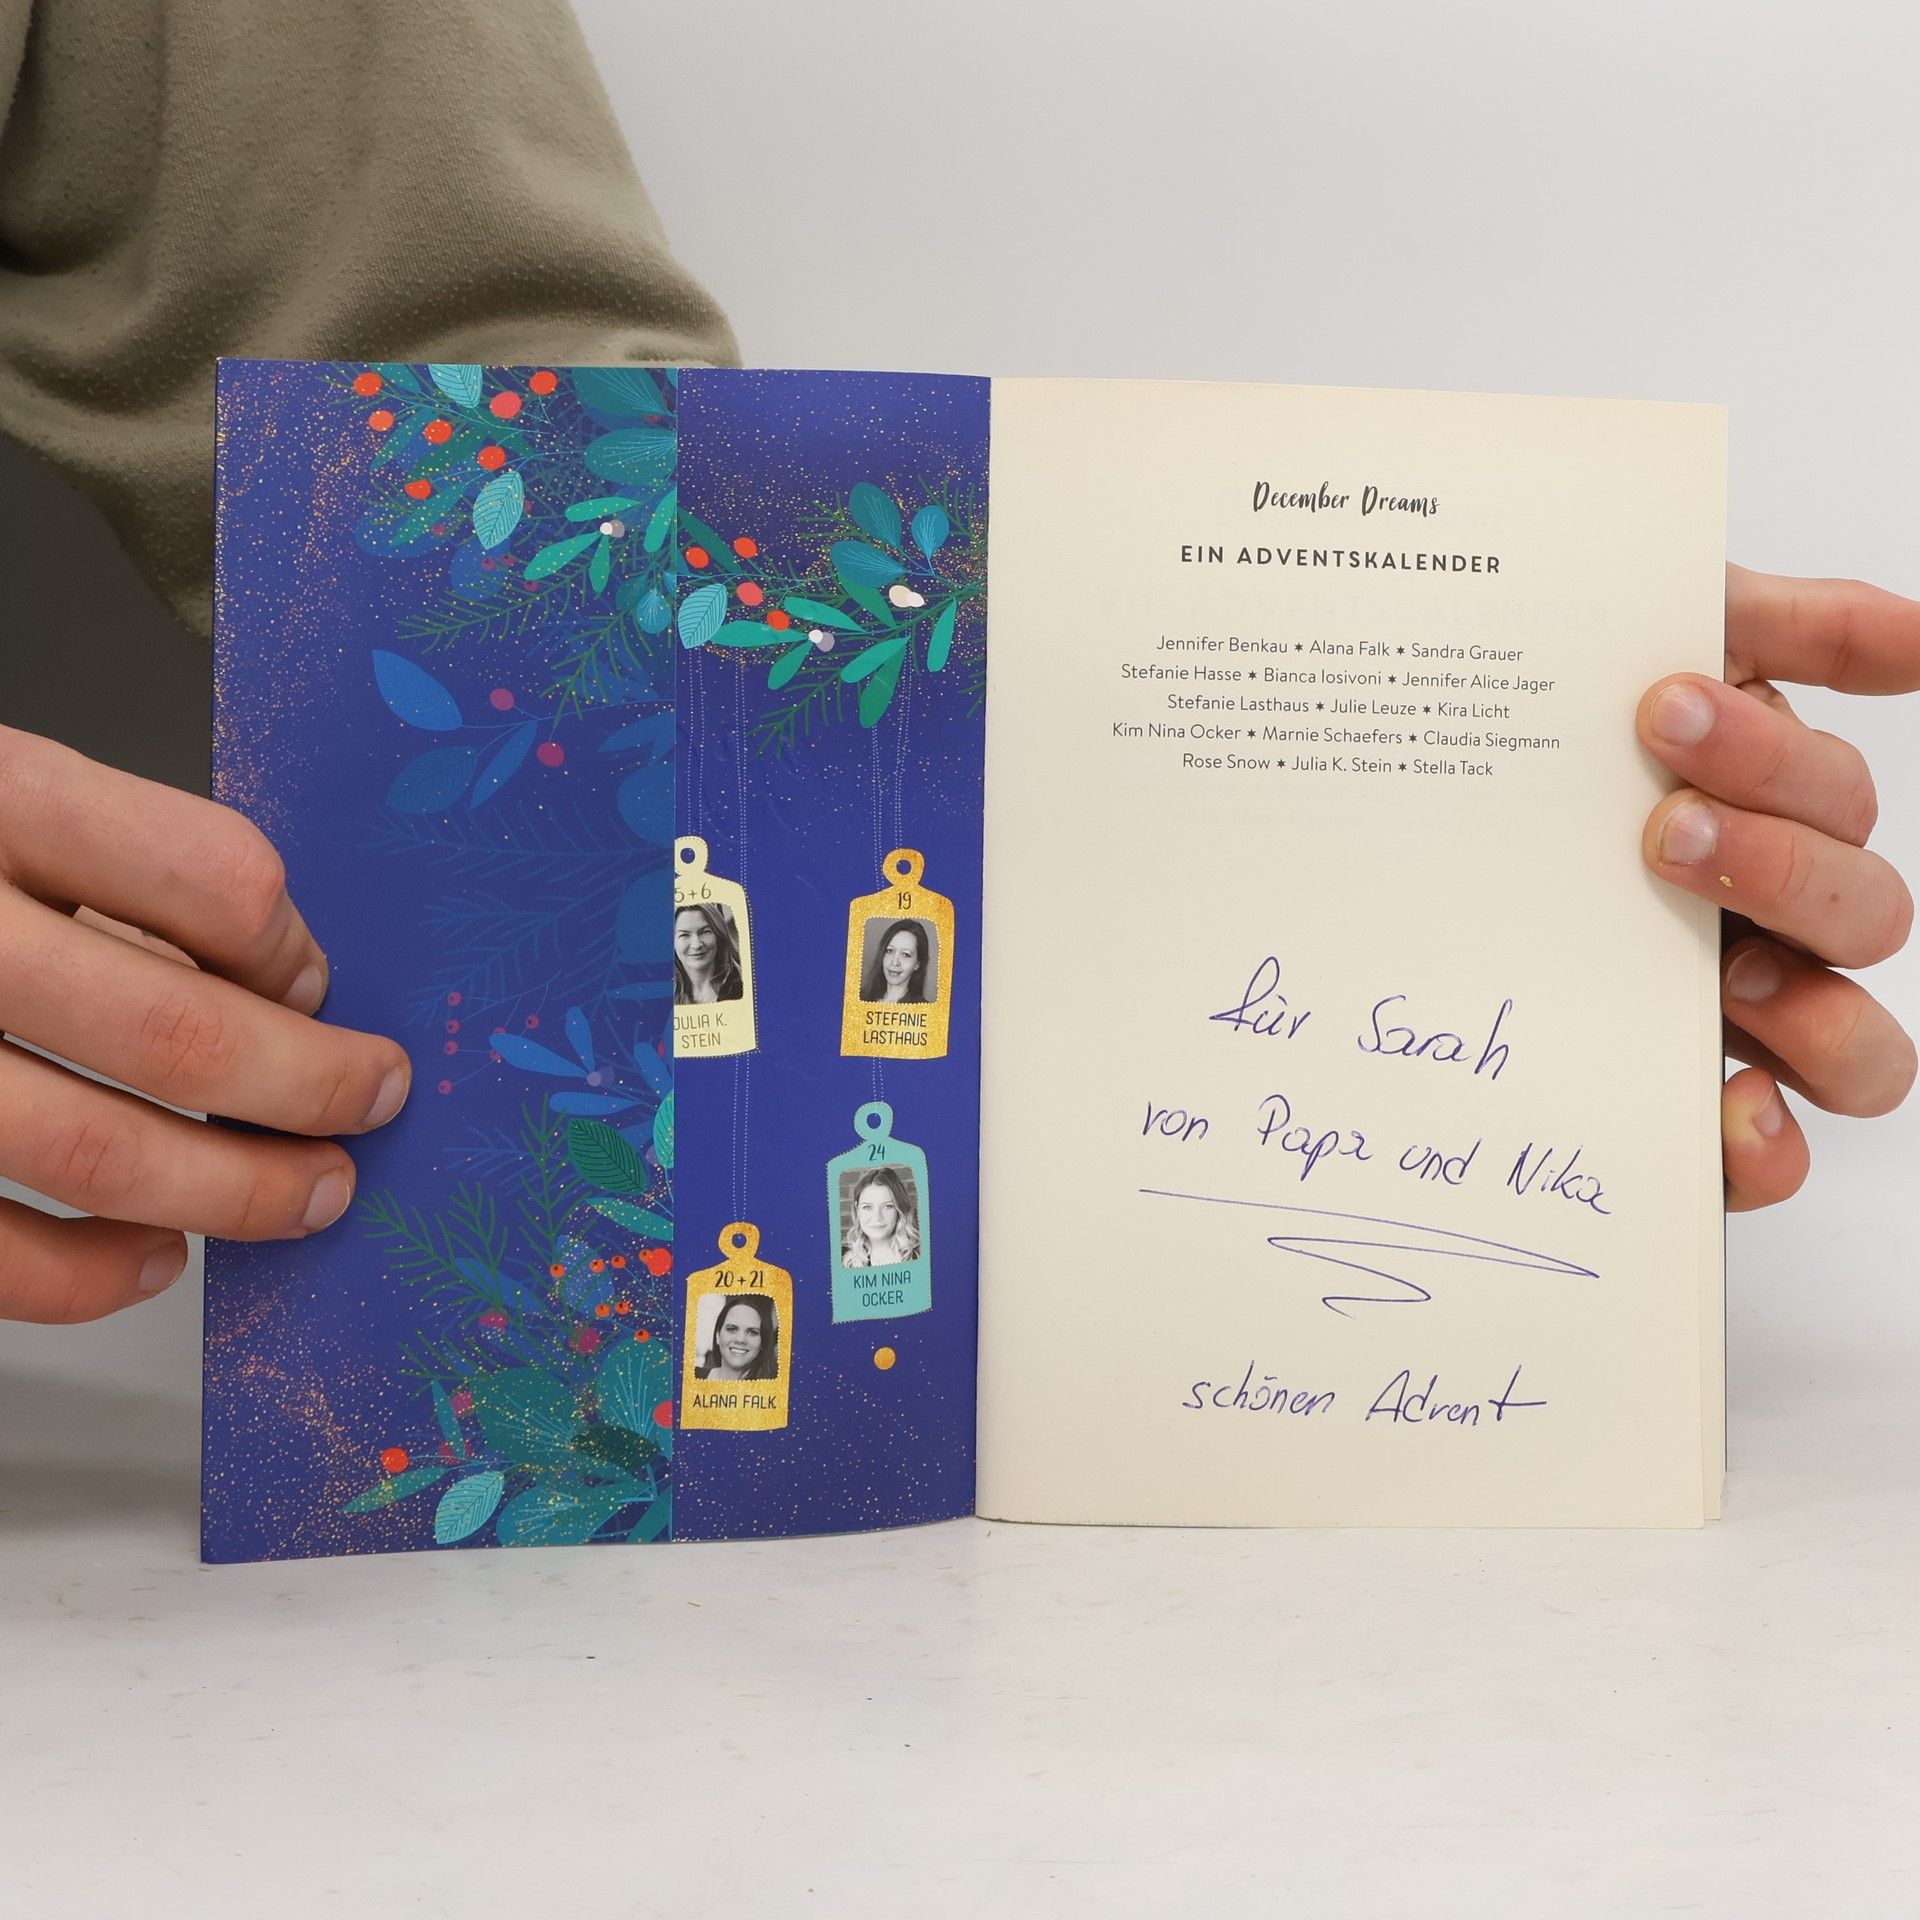 5+6
JULIA K.
STEIN
19
STEFANIE
LASTHAUS
24
KIM NINA
OCKER
20+21
ALANA FALK
December Dreams
EIN ADVENTSKALENDER
Jennifer Benkau ✶ Alana Falk ✶ Sandra Grauer
Stefanie Hasse ✶ Bianca Iosivoni ✶ Jennifer Alice Jager
Stefanie Lasthaus ✶ Julie Leuze ✶ Kira Licht
Kim Nina Ocker ✶ Marnie Schaefers ✶ Claudia Siegmann
Rose Snow ✶ Julia K. Stein ✶ Stella Tack
für Sarah
von Papa und Nika
schönen Advent